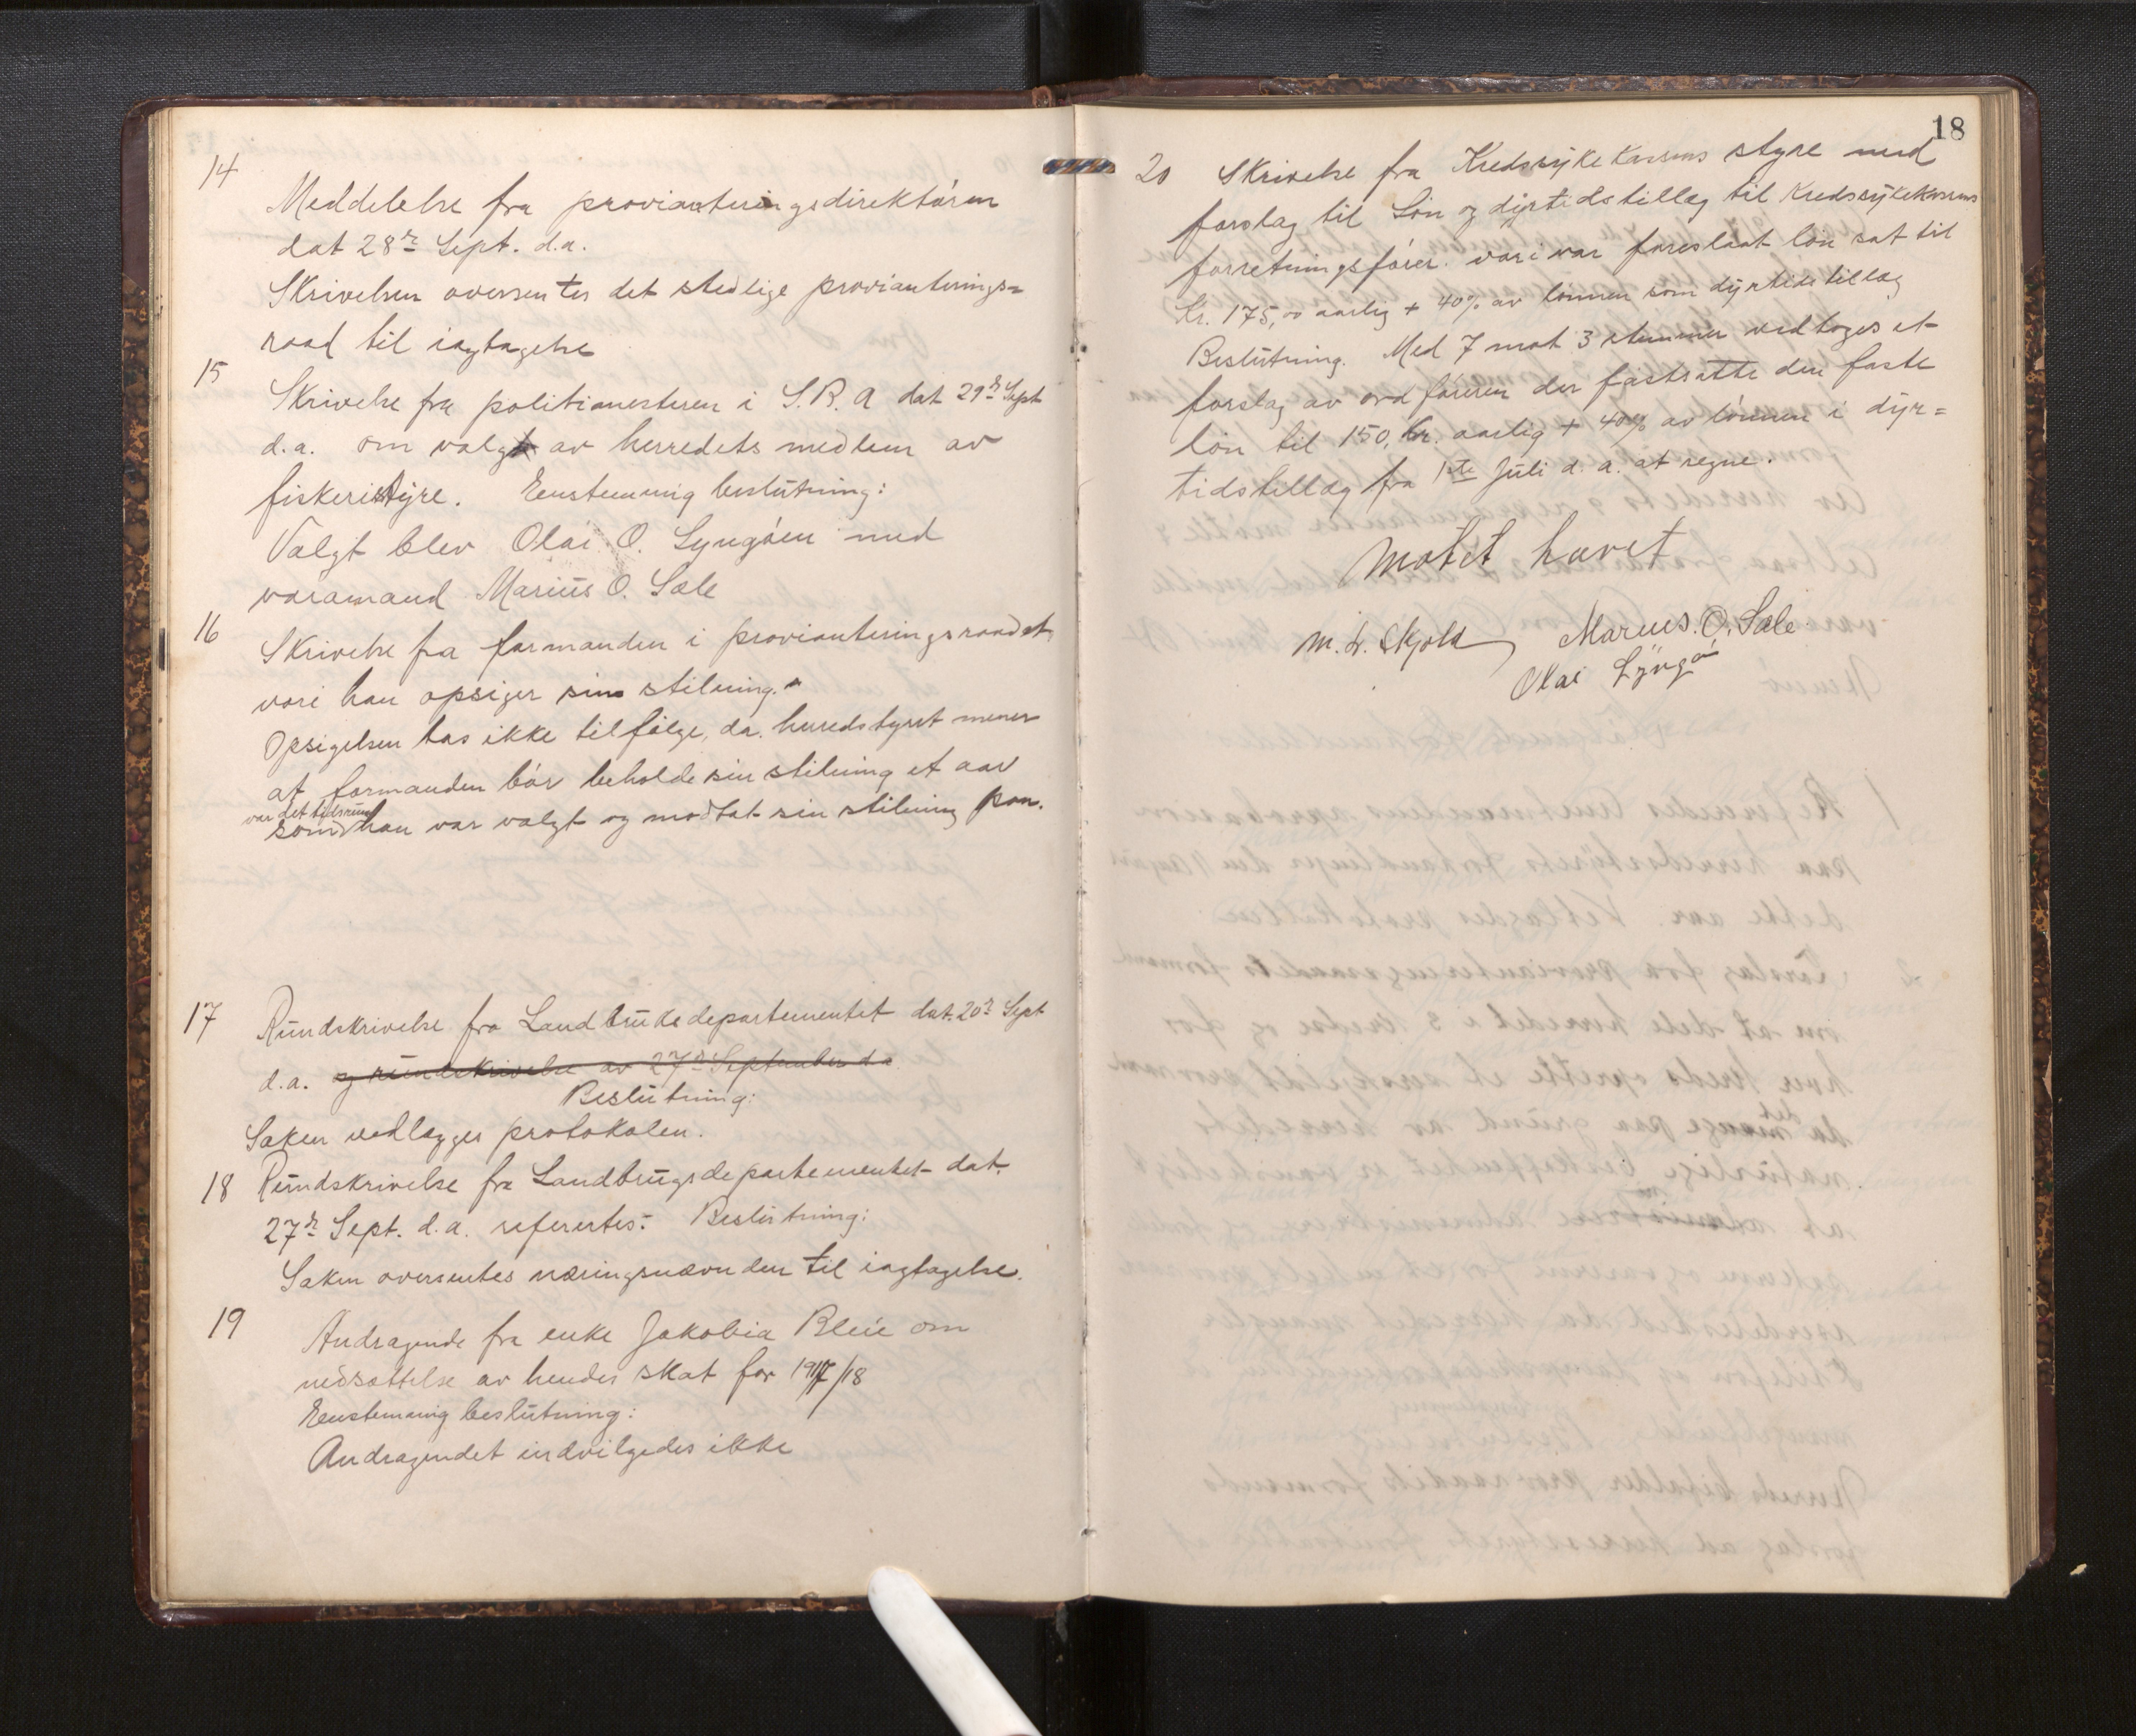 14
Meddelelse fra provianteringsdirektøren
dat 28de Sept. d.a.
Skrivelsen oversentes det stedlige provianterings=
raad til iagtagelse
15
Skrivelse fra politimesteren i S.B.A dat 29de Sept
d.a. om valgt av herredets medlem av
fiskeristyre. Eenstemmig beslutning:
Valgt blev Olai O. Lyngøen med
varamand Marius O. Sæle
16
Skrivelse fra formanden i provianteringsraadet,
vori han opsiger sin stilning.
Opsigelsen tas ikke tilfølge, da herredstyret mener
at formanden bør beholde sin stilning et aar
var det tidsrum
som han var valgt og modtat sin stilning paa.
17 Rundskrivelse fra Landbruksdepartementet dat. 20de Sept
d.a. og rundskrivelse av 27de September da
Beslutning:
Saken vedlægges protokolen.
18 Rundskrivelse fra Landbrugsdepartementet dat.
27de Sept. d.a. referertes: Beslutning:
Saken oversentes næringsnævnden til iagtagelse.
19
Andragende fra enke Jakobia Bleie om
nedsættelse av hendes skat for 1917/18
Eenstemmig beslutning:
Andragendet indvilgedes ikke
18
20 Skrivelse fra Kredssykekassens styre med
forslag til Løn og dyrtidstillæg til Kredssykekassens
forretningsfører. vori var foreslaat løn sat til
Kr. 175,00 aarlig + 40% av lønnen som dyrtidstillæg
Beslutning. Med 7 mot 3 stemmer vedtoges et
forslag av ordføreren der fastsatte den faste
løn til 150, Kr. aarlig + 40% av lønnen i dyr=
tidstillæg fra 1ste Juli d. a. at regne.
Møtet hævet
M. L. Skjold Marius. O. Sæle.
Olai Lyngø